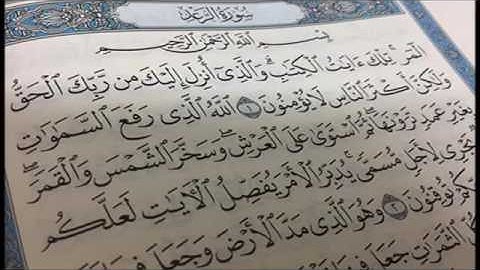 سُورَةُ الرَّعْدِ
بِسْمِ اللَّهِ الرَّحْمَٰنِ الرَّحِيمِ
الٓمٓر ۚ تِلْكَ ءَايَٰتُ ٱلْكِتَٰبِ ۗ وَٱلَّذِىٓ أُنزِلَ إِلَيْكَ مِن رَّبِّكَ ٱلْحَقُّ
وَلَٰكِنَّ أَكْثَرَ ٱلنَّاسِ لَا يُؤْمِنُونَ ١ ٱللَّهُ ٱلَّذِى رَفَعَ ٱلسَّمَٰوَٰتِ
بِغَيْرِ عَمَدٍ تَرَوْنَهَا ۖ ثُمَّ ٱسْتَوَىٰ عَلَى ٱلْعَرْشِ ۖ وَسَخَّرَ ٱلشَّمْسَ وَٱلْقَمَرَ ۖ
يَجْرِى لِأَجَلٍ مُّسَمًّى ۚ يُدَبِّرُ ٱلْأَمْرَ يُفَصِّلُ ٱلْءَايَٰتِ لَعَلَّكُم
تُوقِنُونَ ٢ وَهُوَ ٱلَّذِى مَدَّ ٱلْأَرْضَ وَجَعَلَ فِيهَا
ٱلثَّمَرَٰتِ جَعَلَ فِيهَا